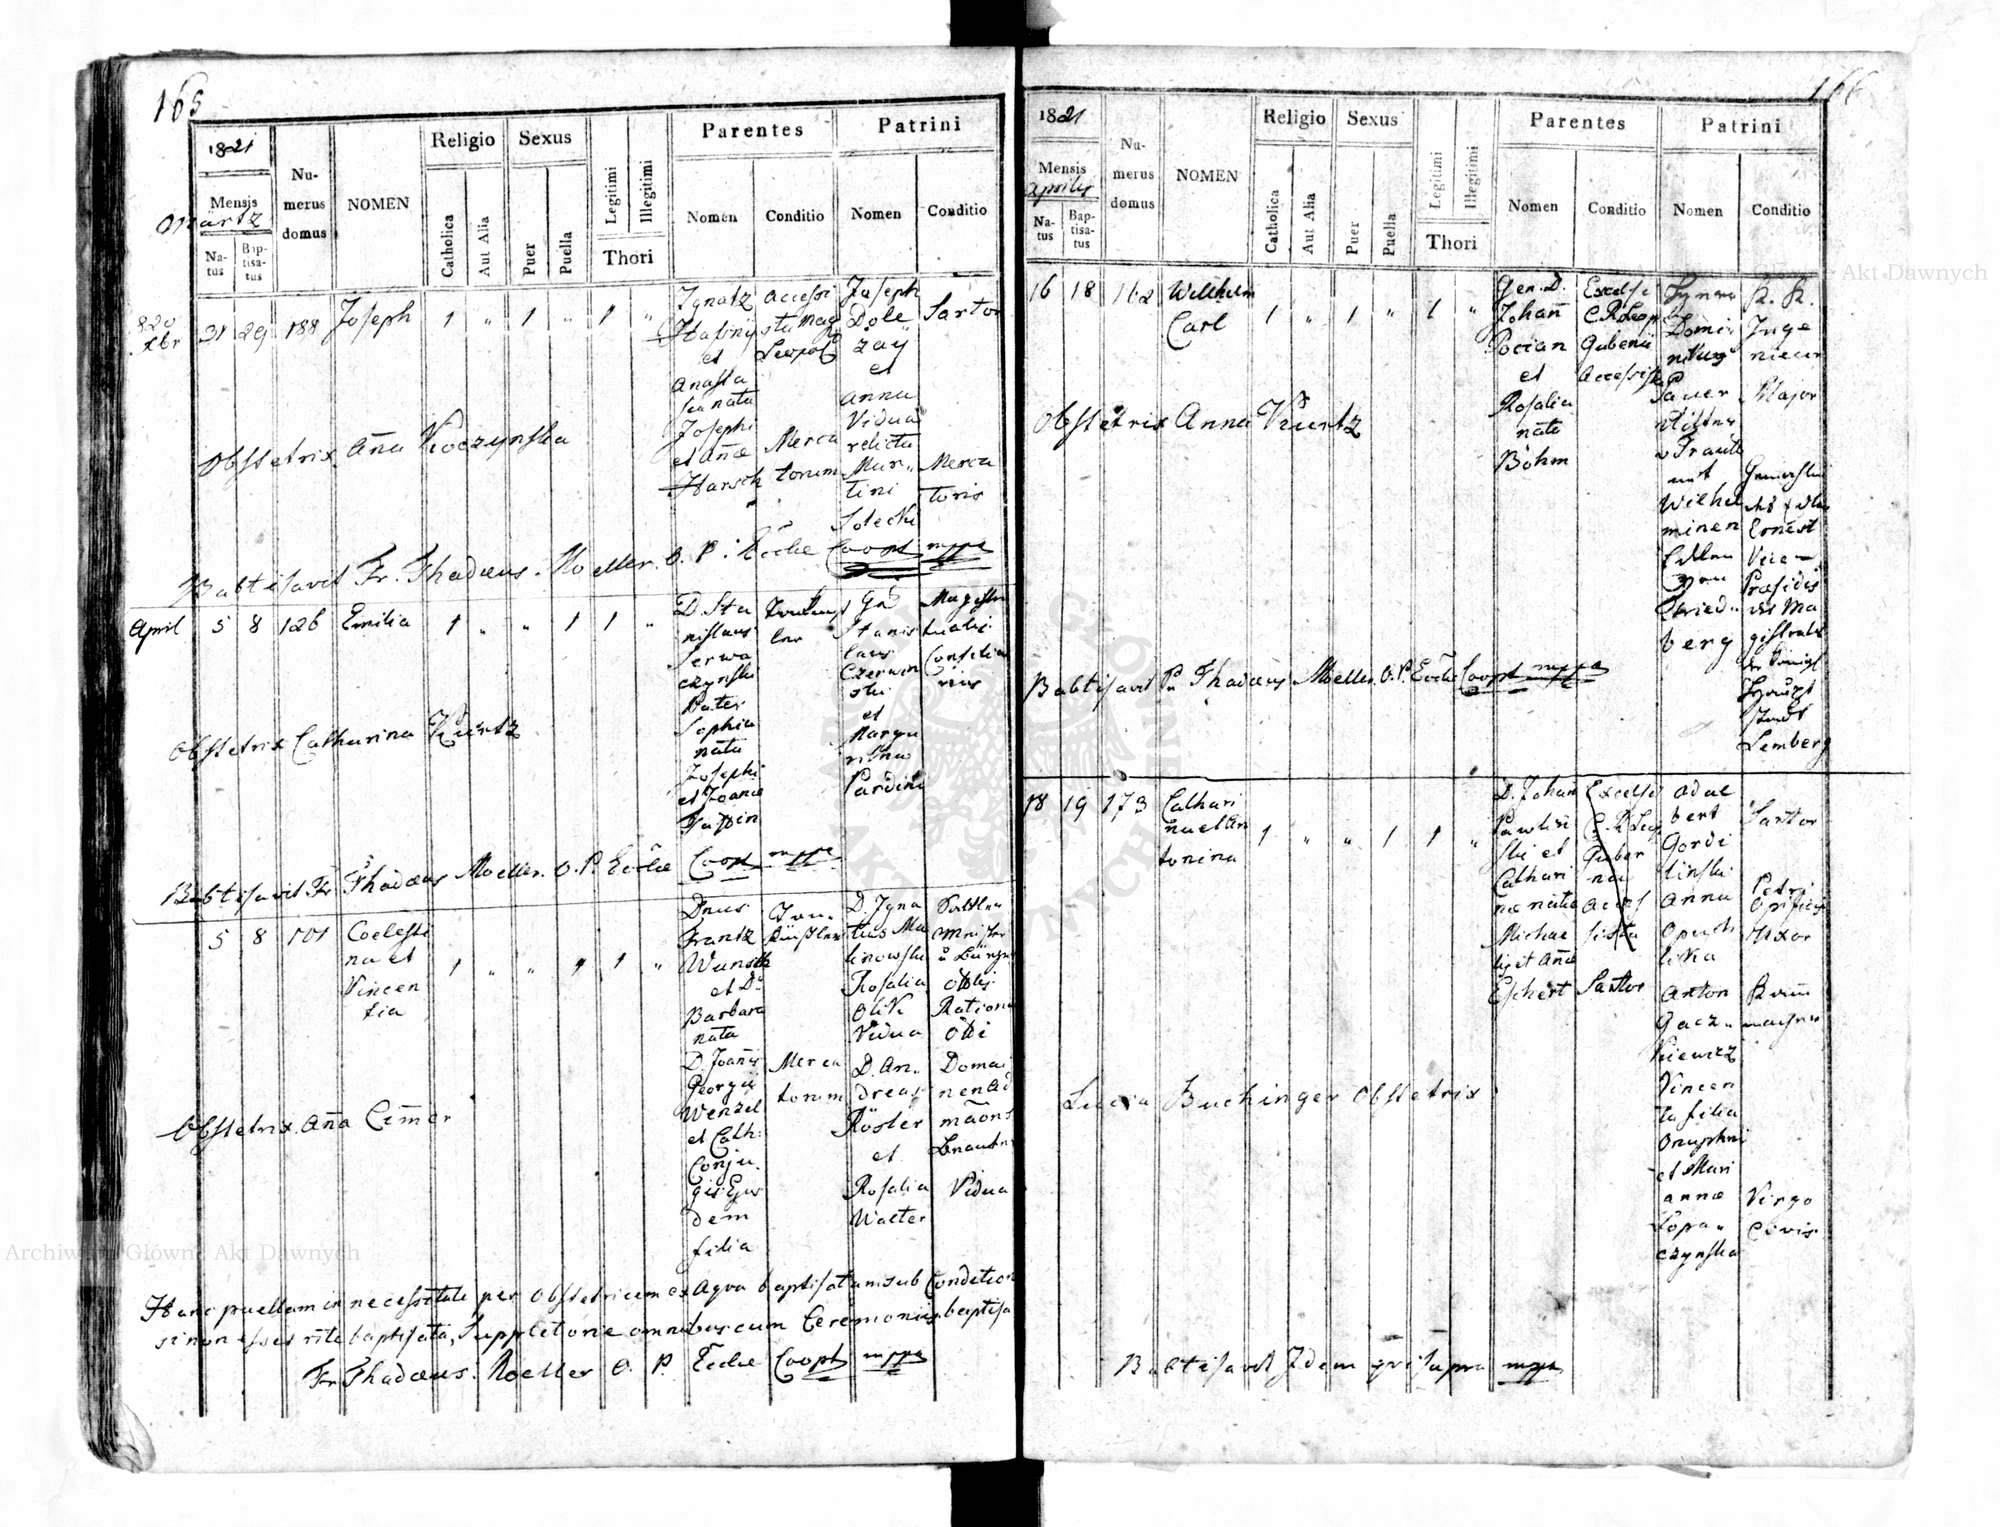 165
1821
Mensis
Martz
Natus
Baptisatus
Numerus domus
NOMEN
Religio
Catholica
Aut Alia
Sexus
Puer
Puella
Legitimi
Illegitimi
Thori
Parentes
Nomen
Conditio
Patrini
Nomen
Conditio
820
Xbr
31 29 188 Joseph 1 „ 1 „ 1 „
Ignatz
et
Anasta
sia nata
Josephi
et Anae
Harsch
Merca
torum
Joseph
Dole
zay
et
Anna
Vidua
relicta
Mar„
tini
Solecki
Sartor
Merca
toris
Obstetrix Aña Kioczynska
Babtisavit Fr. Thadæus Moeller O. P. Eccle Coopt mppa
April 5 8 126 Emilia 1 „ „ 1 1 „
D. Sta
nislaus
Serwa
czynski
Pater
Sophia
nata
Josephi
et Joanæ
Stanis
laus
Czerwin
ski
et
Margu
Pardini
Magistra
tualis
Consilia
rius
Obstetrix Catharina Kurtz
Babtisavit Fr Thadæus Moeller. O. P. Eccle Coopt mppa
5 8 101 Coelesti
na et
Vincen
tia
1 „ „ 1 1 „
Dnus
Frantz
Wunsch
et Da
Barbara
nata
D. Joañis
Georgii
Wenzel
et Cath:
Conju
gis Ejus
dem
filia
Merca
torum
D. Igna
tius Ma
linowski
Rosalia
Olik
Vidua
D. An„
dreas
Röster
et
Rosalia
Walter
Sattler
Meister
Domai
Vidua
Obstetrix. Aña Cim̃er
Hanc puellam in necessitate per Obstetricem ex Aqva baptisatam sub Condition
si non esses rite baptisata, Suppletorie omnibus cum Ceremoniis baptisa
Fr Thadæus Moeller O. P. Eccle Coopt mppa
166
1821
Mensis
Aprilis
Natus
Baptisatus
Numerus domus
NOMEN
Religio
Catholica
Aut Alia
Sexus
Puer
Puella
Legitimi
Illegitimi
Thori
Parentes
Nomen
Conditio
Patrini
Nomen
Conditio
16 18 162 Willhelm
Carl
1 „ 1 „ 1 „
Gen. D.
Johañ
Pocian
et
Rosalia
nata
Böhm
Excelsi
Gubernii
Accessista
Domi
nikus
Pauer
Wilhel
minen
Edlen
von
Kried„
berg
K. K.
Inge
nieur
Major
Ernest
Vice
Præsidis
des Ma
gistrats
der Königl
Haupt
stadt
Lemberg
Obstetrix Anna Kurtz
Babtisavit Pr Thadæus Moeller O. P. Eccle Coopt mppa
18 19 173 Cathari
na et An
tonina
1 „ „ 1 1 „
D. Johan
Pawlisi
ski et
Cathari
næ nata
Michae
lis et Añæ
Eschert
Excelsi
Guber
nii
Acces
sista
Sartor
Adal
bert
Gordi
linski
Anna
Opuch
lika
Anton
Gacz„
kiewicz
Vincen
ta filia
Onuphri
et Mari
annæ
Lopa„
czynska
Sartor
Petri
Opificis
Uxor
Virgo
Civis
Lucia Buchinger Obstetrix
Babtisavit Idem qui supra mppa
Archiwum Główne Akt Dawnych
Archiwum Główne Akt Dawnych